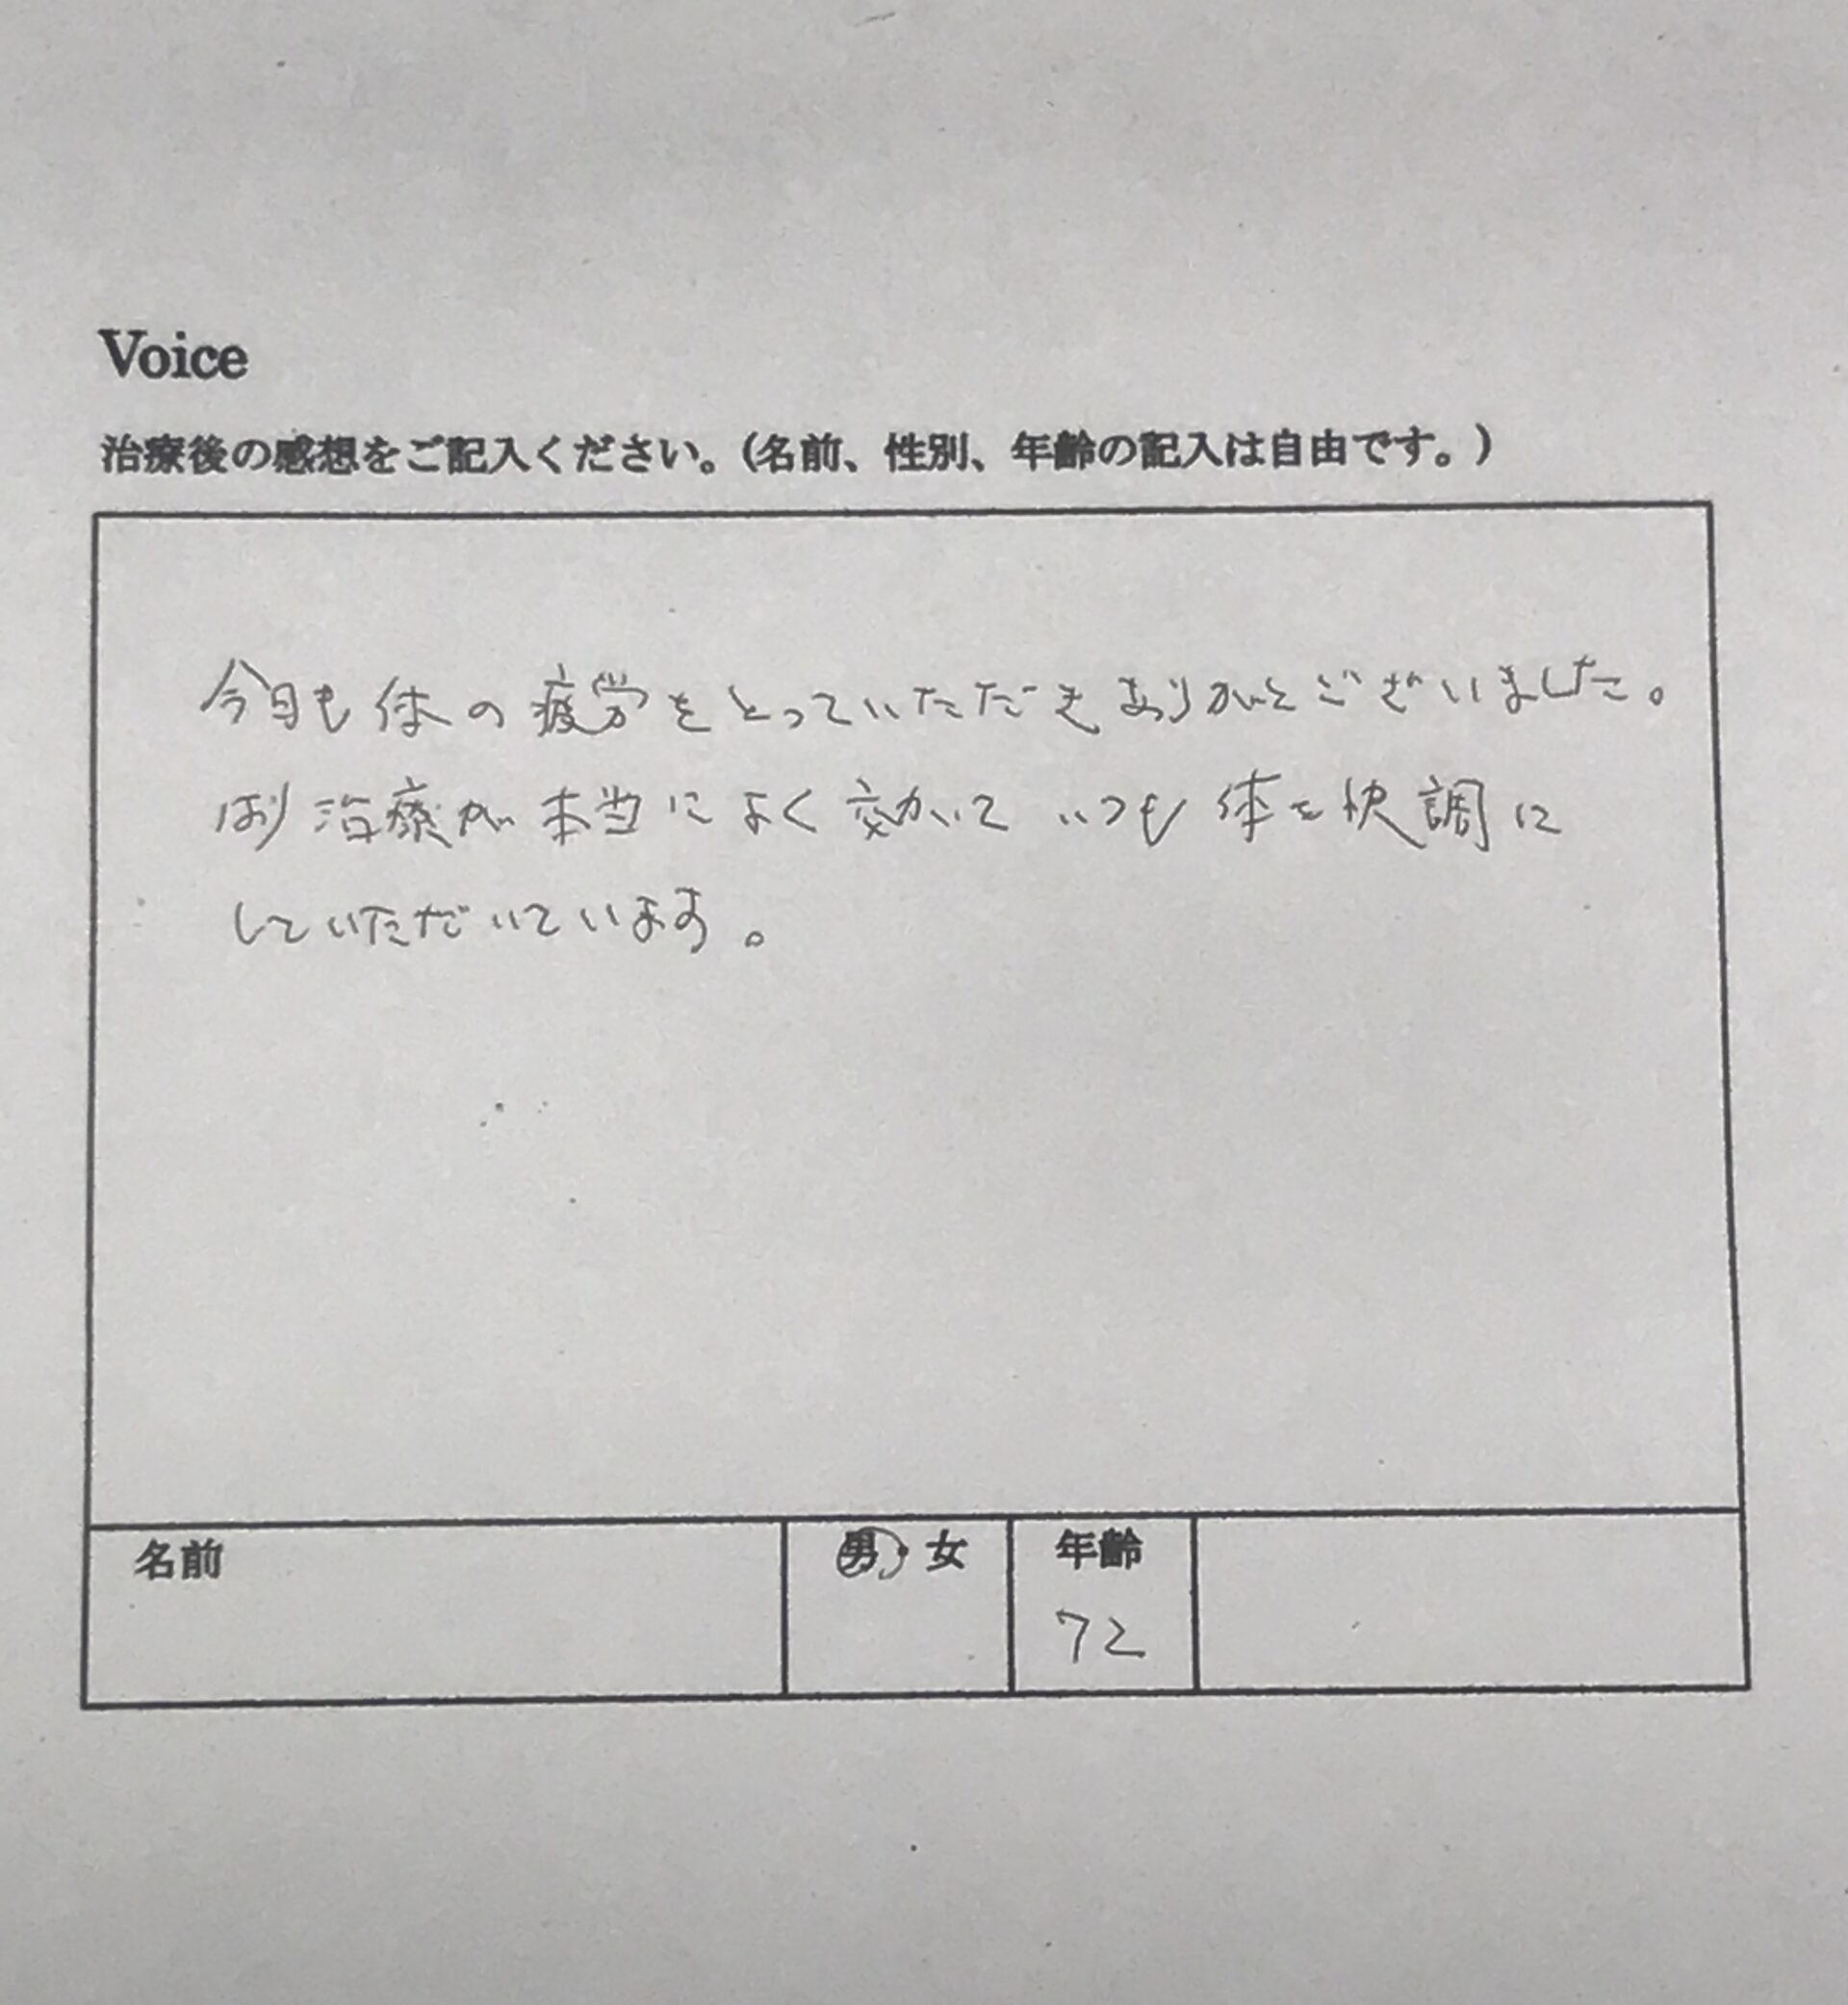 Voice
治療後の感想をご記入ください。(名前、性別、年齢の記入は自由です。)
今日も体の疲労をとっていただきありがとございました。
はり治療が本当によく効いていつも体を快調に
していただいています。
名前 男・女 年齢
72